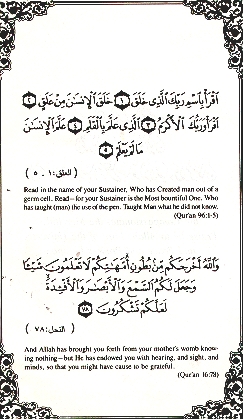 اقْرَأْ بِاسْمِ رَبِّكَ الَّذِى خَلَقَ ١ خَلَقَ الْإِنسَٰنَ مِنْ عَلَقٍ ٢
اقْرَأْ وَرَبُّكَ الْأَكْرَمُ ٣ الَّذِى عَلَّمَ بِالْقَلَمِ ٤ عَلَّمَ الْإِنسَٰنَ
مَا لَمْ يَعْلَمْ ٥
( العلق : ١ ـ ٥ )
Read in the name of your Sustainer, Who has Created man out of a
germ cell. Read–for your Sustainer is the Most bountiful One. Who
has taught (man) the use of the pen. Taught Man what he did not know.
(Qur'an 96:1-5)
وَاللَّهُ أَخْرَجَكُم مِّنۢ بُطُونِ أُمَّهَٰتِكُمْ لَا تَعْلَمُونَ شَيْـًٔا
وَجَعَلَ لَكُمُ السَّمْعَ وَالْأَبْصَٰرَ وَالْأَفْـِٔدَةَ
لَعَلَّكُمْ تَشْكُرُونَ ٧٨
( النحل : ٧٨ )
And Allah has brought you forth from your mother's womb know-
ing nothing–but He has endowed you with hearing, and sight, and
minds, so that you might have cause to be grateful.
(Qur'an 16:78)